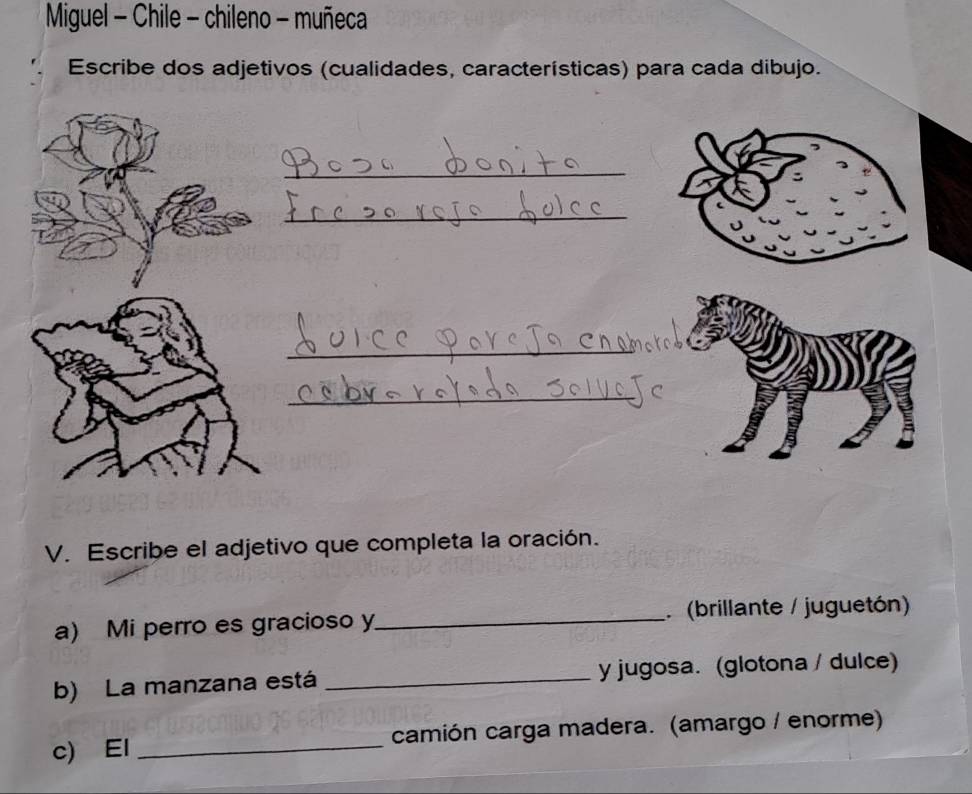 Miguel – Chile – chileno – muñeca
Escribe dos adjetivos (cualidades, características) para cada dibujo.
Rosa bonita
roja dulce
dulce pareja enamorada
cebra rayada salvaje
V. Escribe el adjetivo que completa la oración.
a) Mi perro es gracioso y ____________. (brillante / juguetón)
b) La manzana está ____________ y jugosa. (glotona / dulce)
c) El ____________ camión carga madera. (amargo / enorme)